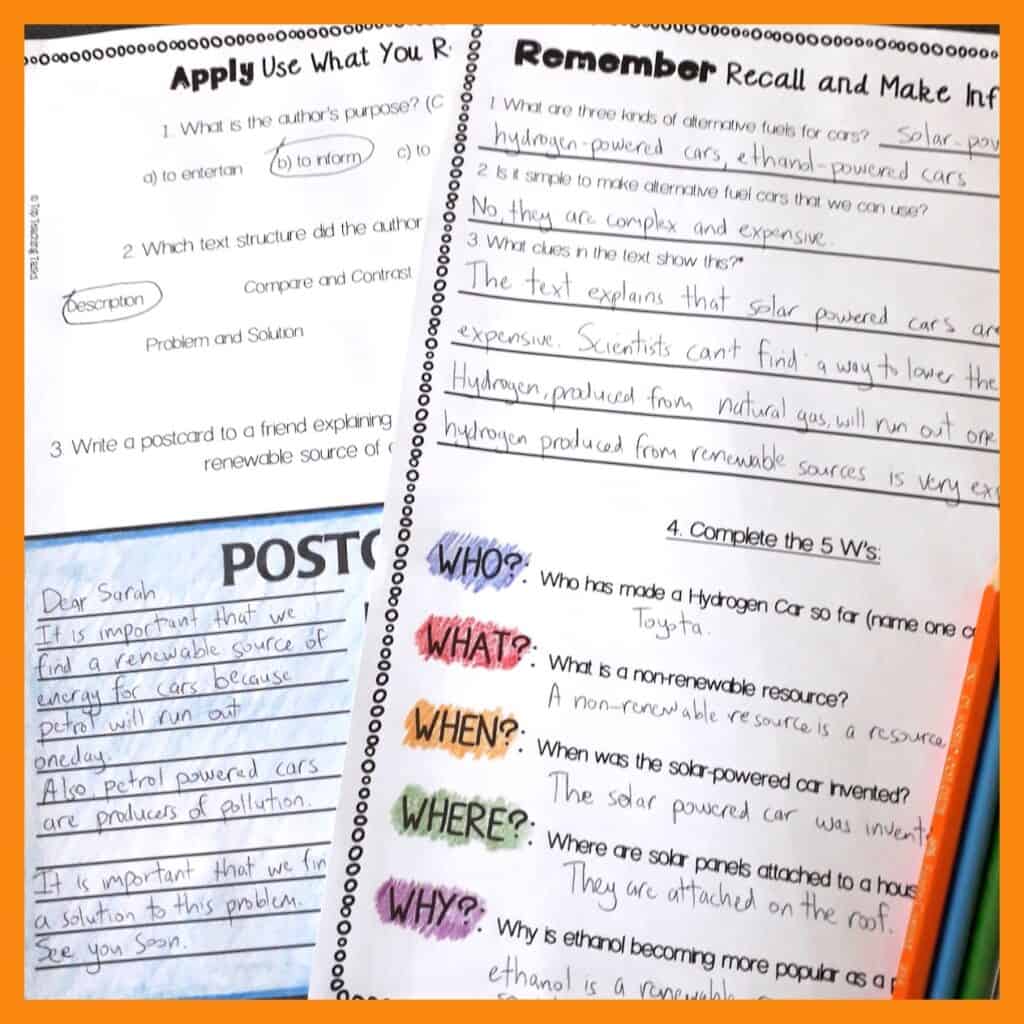 Apply Use What You R
1. What is the author's purpose? (C
a) to entertain b) to inform c) to
© Top Teaching Tasks
2 Which text structure did the author
Description
Compare and Contrast
Problem and Solution
3 Write a postcard to a friend explaining
renewable source of
POSTC
Dear Sarah
It is important that we
find a renewable source of
energy for cars because
petrol will run out
oneday.
Also, petrol powered cars
are producers of pollution.
It is important that we fin
a solution to this problem.
See you soon.
Remember Recall and Make Inf
1 What are three kinds of alternative fuels for cars? Solar-pow
hydrogen-powered cars, ethanol-powered cars
2 Is it simple to make alternative fuel cars that we can use?
No, they are complex and expensive.
3 What clues in the text show this?*
The text explains that solar powered cars are
expensive. Scientists can't find a way to lower the
Hydrogen, produced from natural gas, will run out one
hydrogen produced from renewable sources is very exp
4. Complete the 5 W's:
WHO?: Who has made a Hydrogen Car so far (name one c
Toyota.
WHAT?: What is a non-renewable resource?
A non-renewable resource is a resource
WHEN?: When was the solar-powered car invented?
The solar powered car was invent
WHERE?: Where are solar panels attached to a hous
They are attached on the roof.
WHY?: Why is ethanol becoming more popular as a
ethanol is a renewable